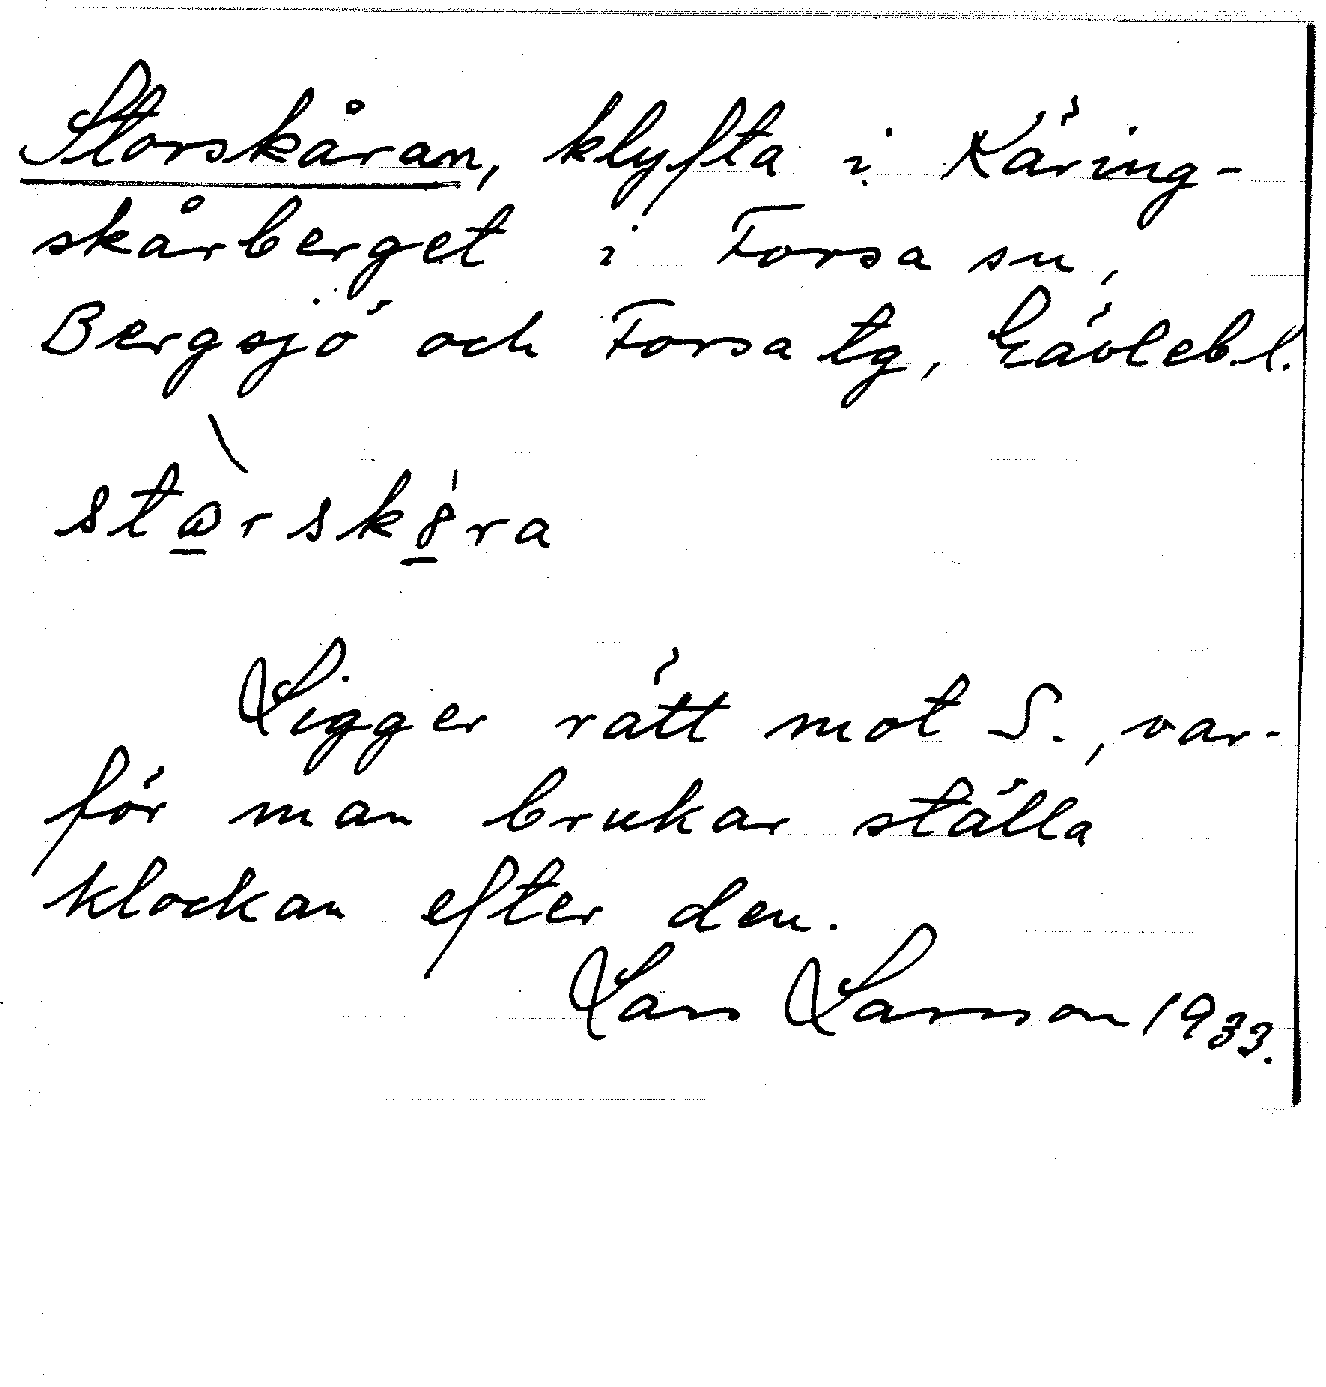 Storskåran, klyfta i Käring-
skårberget i Forsa sn,
Bergsjö och Forsa tg, Gävleb.l.
Ligger rätt mot S., var-
för man brukar ställa
klockan efter den.
Lars Larsson 1933.